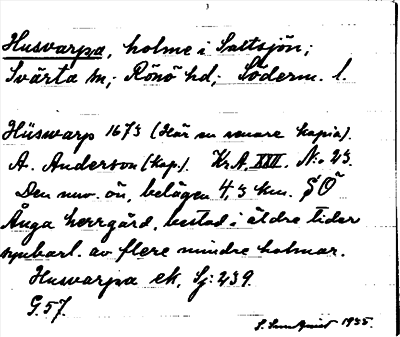 Husvarpa, holme i Saltsjön;
Svärta sn; Rönö hd; Söderm. l.
Hüswarp 1673 (Här en senare kopia).
A. Anderson (kop.). K.A. XXII. No. 23.
Den nuv. ön, belägen 4,3 km. SO
Ånga herrgård, bestod i äldre tider
synbarl. av flere mindre holmar.
Husvarpa ek, Sj: 239.
G.57.
1935.